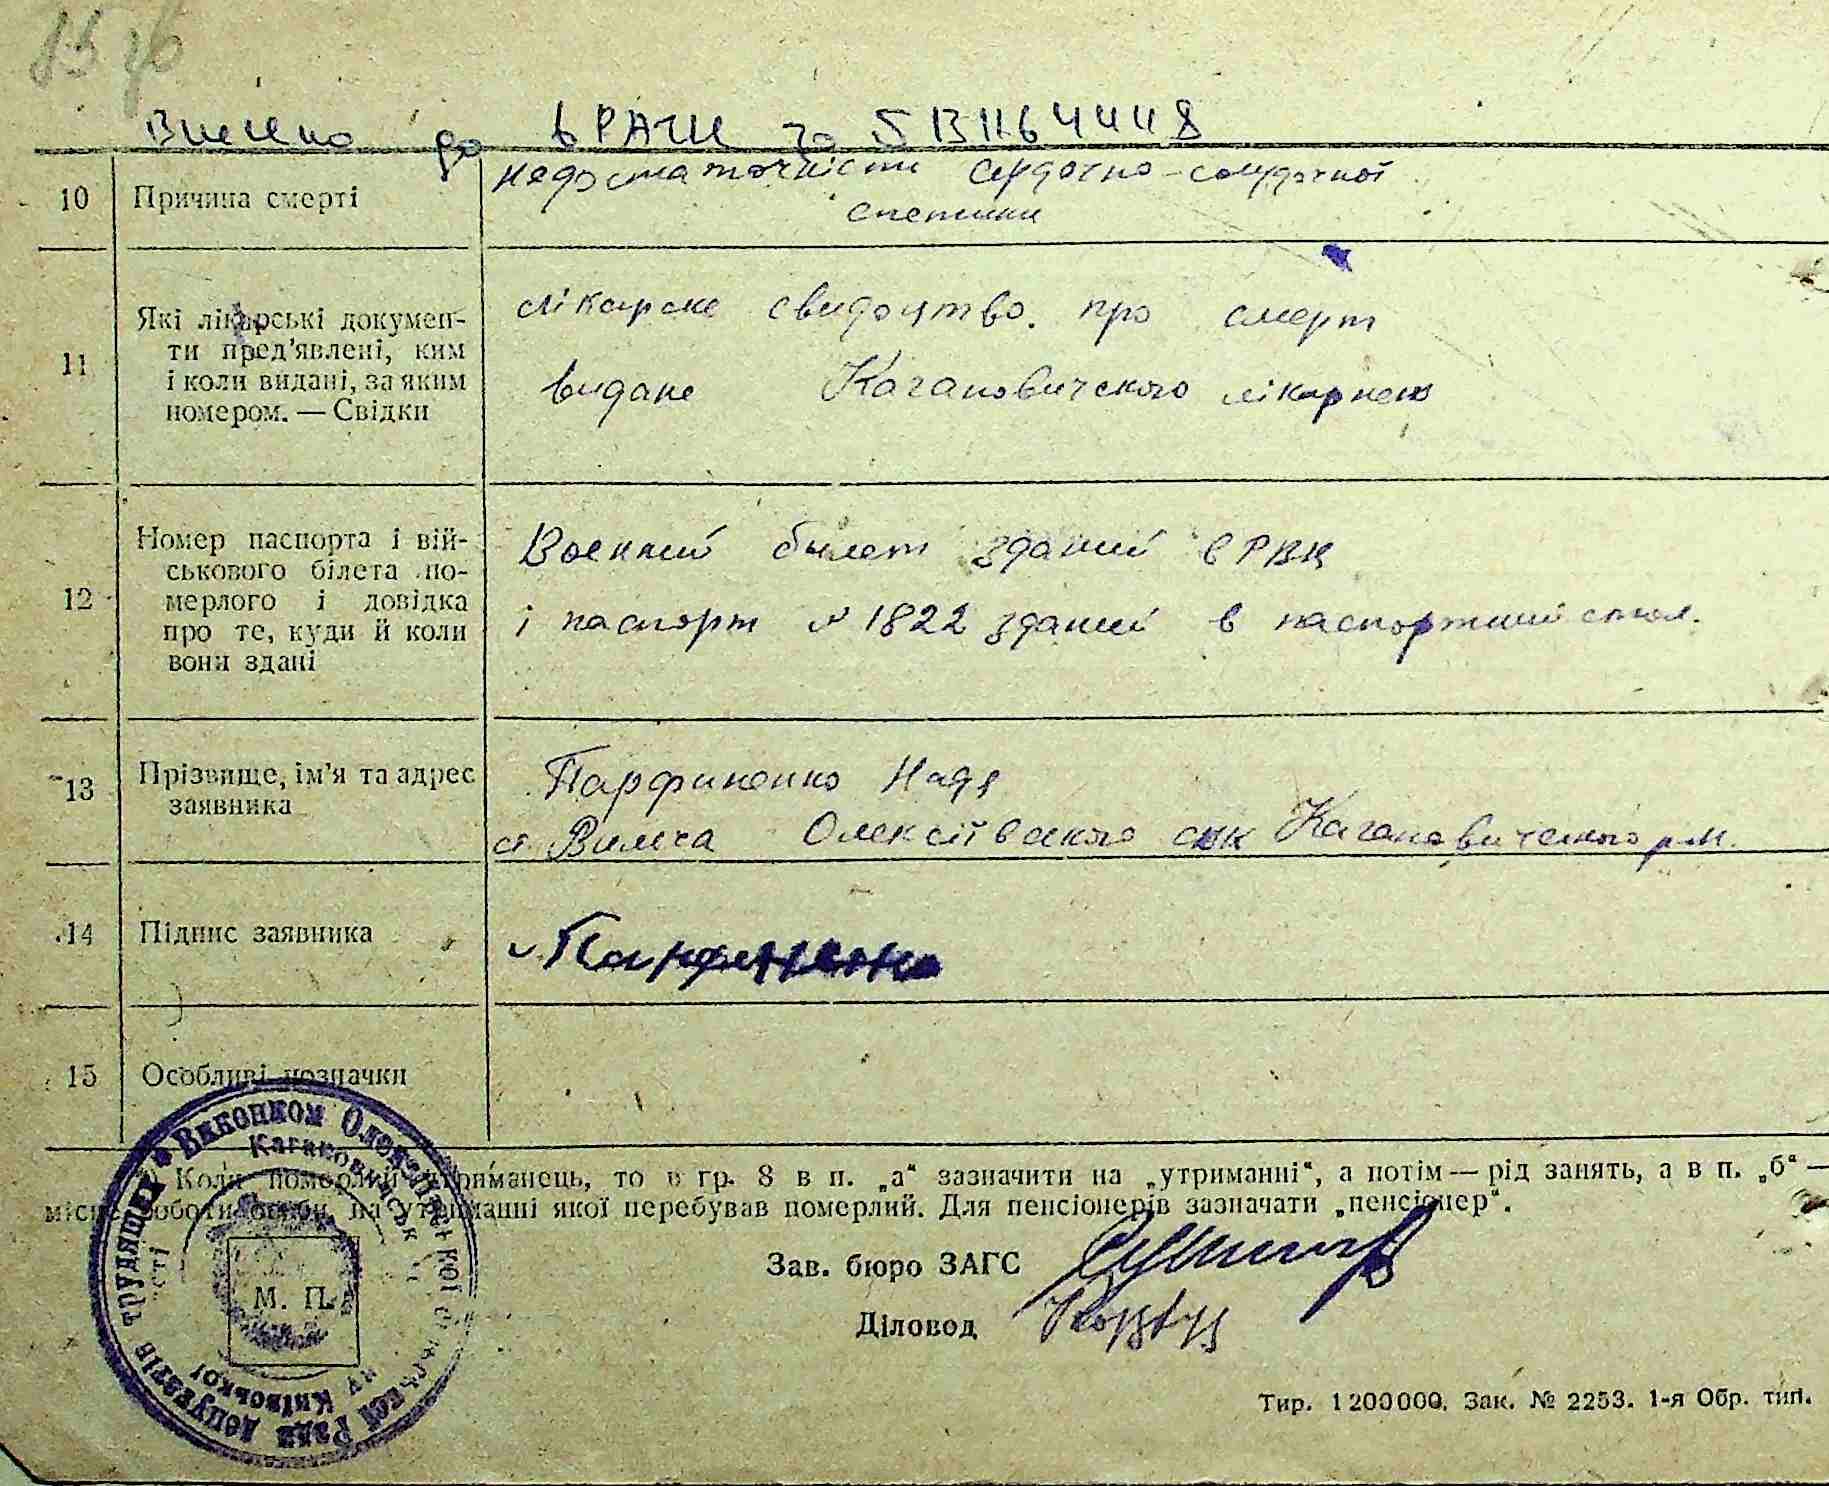 Внесено до ВРАЦС за 513116444 8
10 Причина смерті
недостаточність сердечно-сосудочної
системи
11 Які лікарські документи пред'явлені, ким і коли видані, за яким номером. — Свідки
лікарске свидоцтво про смерт
видане Кагановичского лікарнею
12 Номер паспорта і військового білета померлого і довідка про те, куди й коли вони здані
Военний билет зданий в РВК
і паспорт № 1822 зданий в паспортний стол.
13 Прізвище, ім'я та адрес заявника
Парфиненко Надя
ст Вильча Олексіївского Кагановичского р-н.
14 Підпис заявника
Парфиненко
15 Особливі позначки
Коли померлий утриманець, то в гр. 8 в п. „а“ зазначити на „утриманні“, а потім — рід занять, а в п. „б“ —
місце роботи особи, на утриманні якої перебував померлий. Для пенсіонерів зазначати „пенсіонер“.
Зав. бюро ЗАГС
Діловод
М. П.
Виконком Олексіївської сільської Ради депутатів трудящих
Кагановичськ
Київської
Тир. 1200000. Зак. № 2253. 1-я Обр. тип.